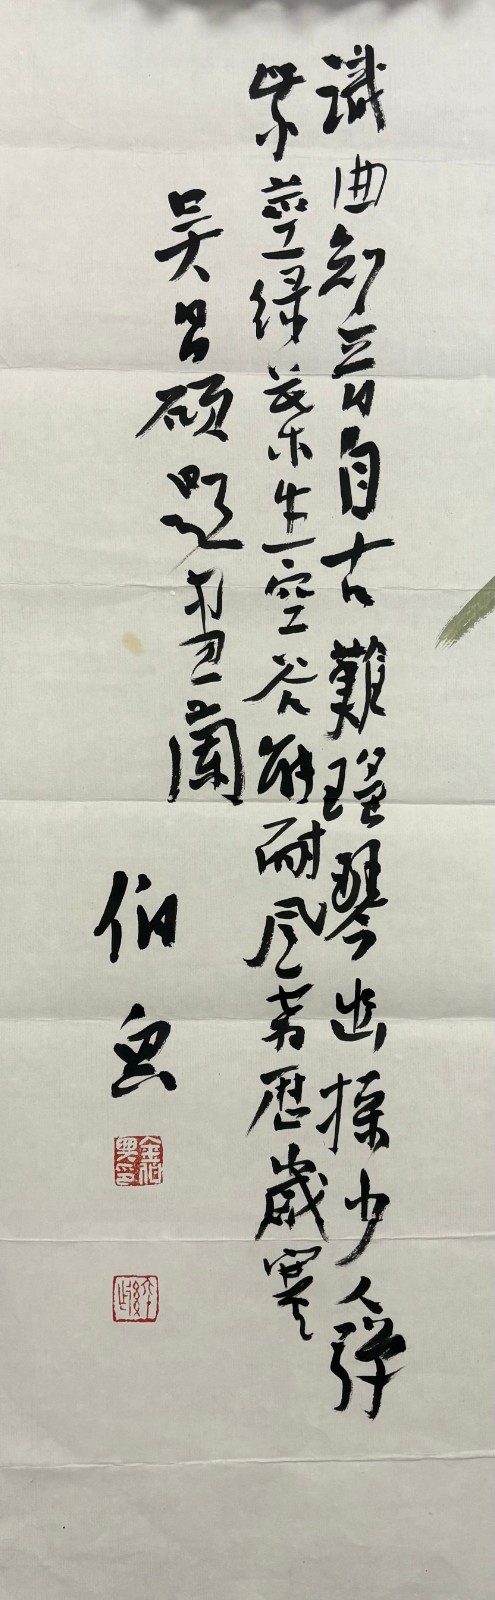 識曲知音自古難瑶琴幽操少人彈
紫莖绿葉生空谷能耐风霜歷歲寒
吴昌碩題畫蘭
伯興
金伯興印